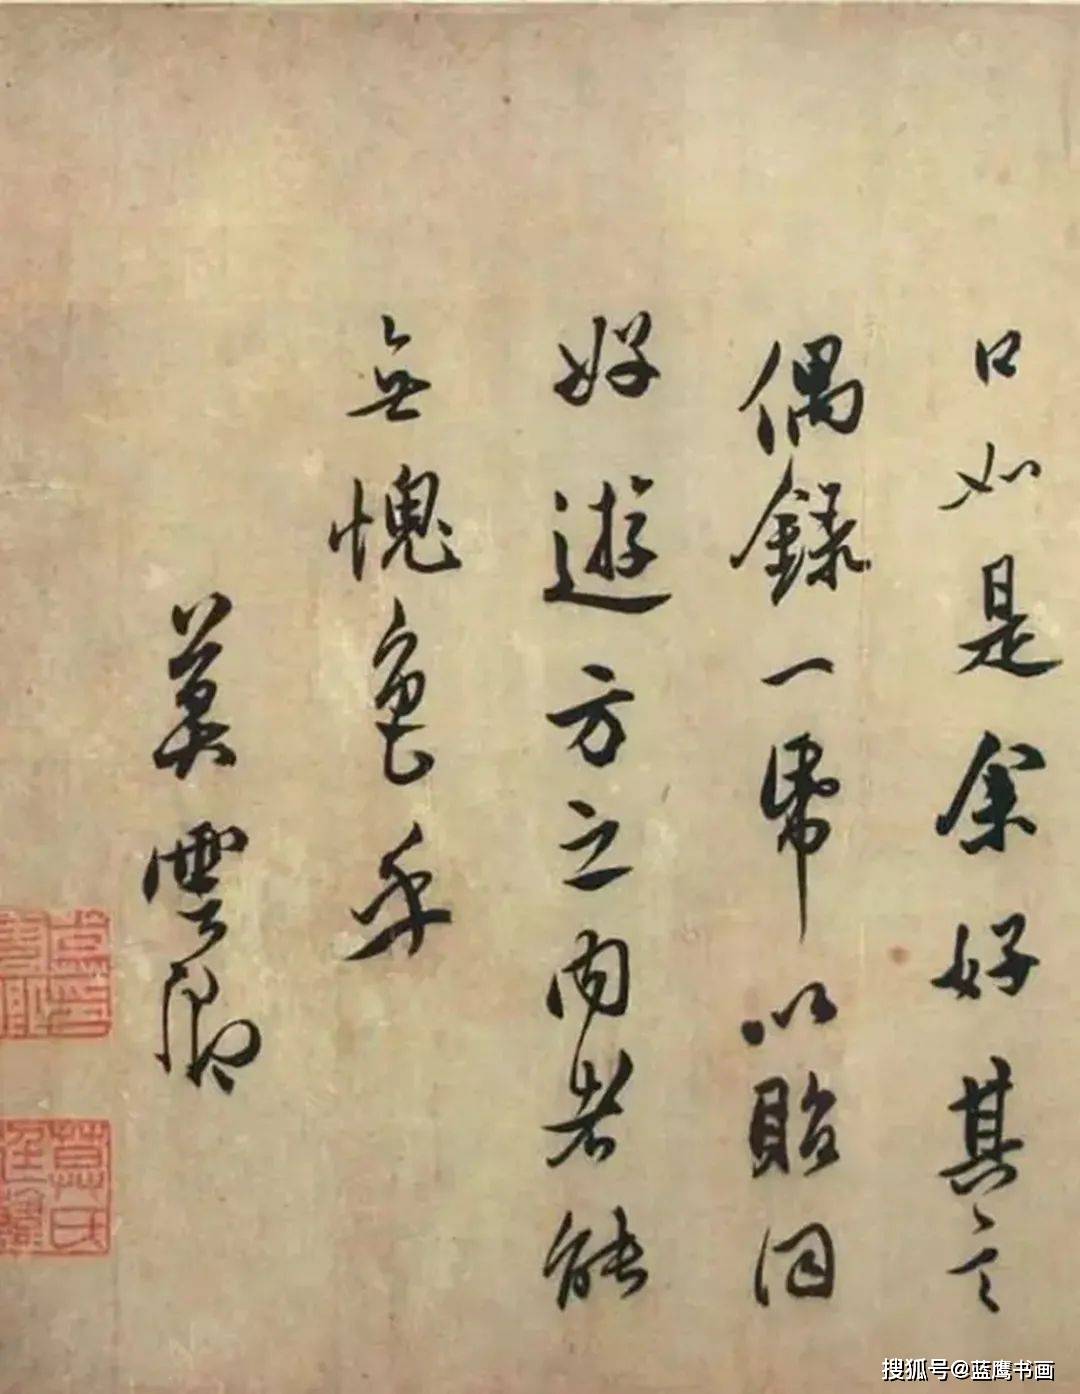 口如是余好其言
偶錄一帋以貽同
好遊方之内者能
無愧色乎
莫雲卿
搜狐号@蓝鹰书画